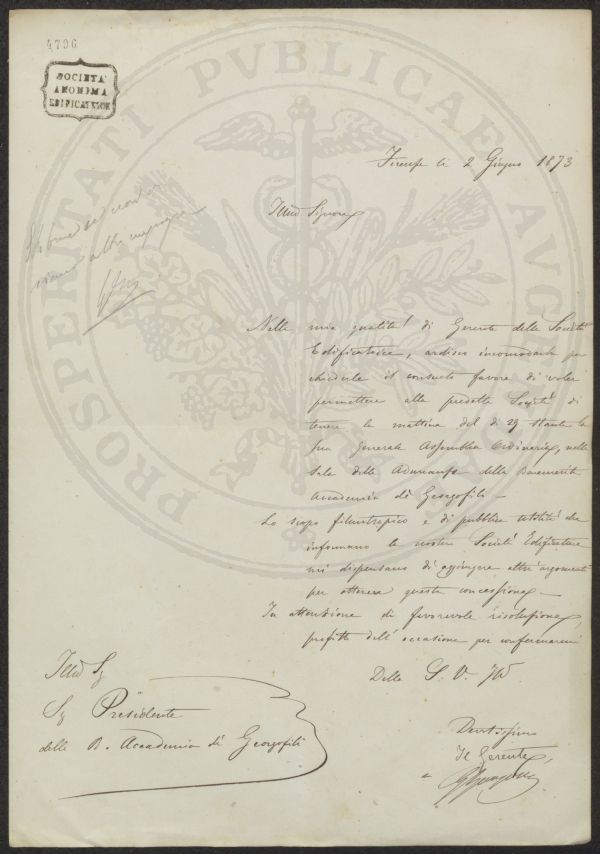 4796
SOCIETÀ
ANONIMA
EDIFICATRICE
PROSPERITATI PVBLICAE AVG
Firenze li 2 Giugno 1873
Illmo Signore
Nella mia qualità di Gerente della Società
Edificatrice, ardisco incomodarla per
chiederle il consueto favore di voler
permettere alla predetta Società di
tenere la mattina del dì 29 stante la
sua Generale Assemblea Ordinaria, nella
Sala delle Adunanze della Benemerita
Accademia dei Georgofili —
Lo scopo filantropico e di pubblica utilità che
informano la nostra Società Edificatrice
mi dispensano di aggiungere altri argomenti
per ottenere questa concessione —
In attenzione di favorevole risoluzione,
profitto dell' occasione per confermarmi
Della S. V. Illma
Illmo Sig
Sig Presidente
della R. Accademia dei Georgofili
Devotissimo
Il Gerente